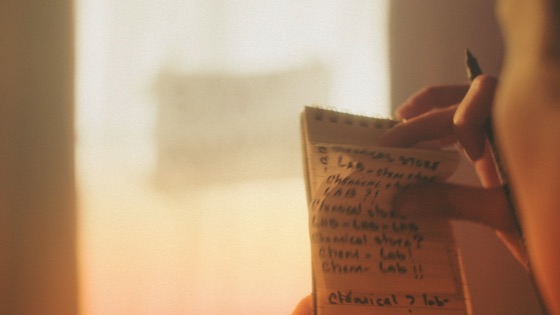 CHEMICAL STORE
LAB - chemical
Chemical
LAB ?!
Chemical store
LAB - LAB - LAB
Chemical store?
Chem - Lab!
Chem - Lab !!
Chemical ? lab-